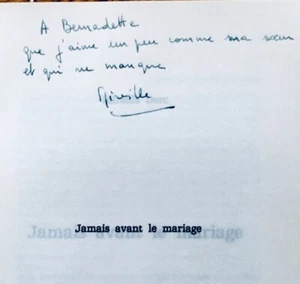 A Bernadette
que j'aime un peu comme ma sœur
et qui me manque
Mireille
Jamais avant le mariage
Jamais avant le mariage